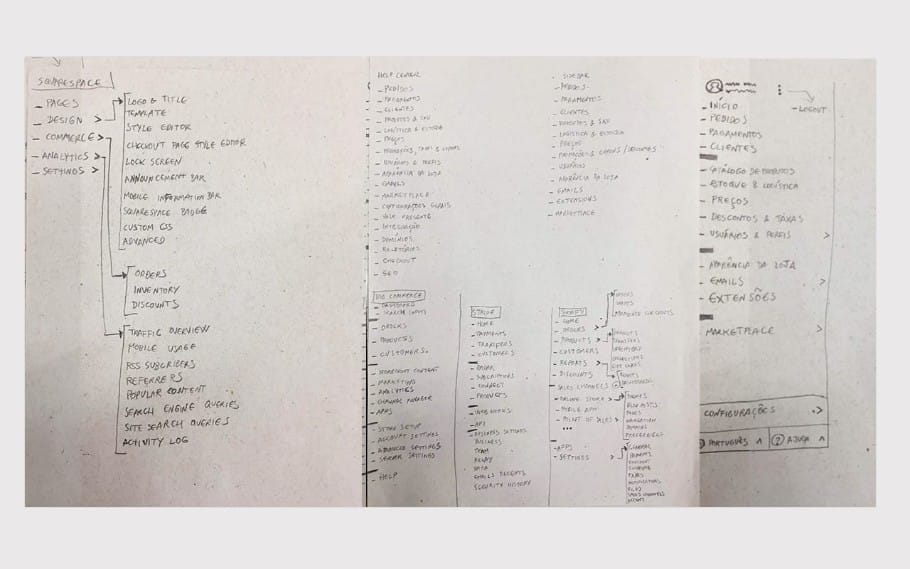 SQUARESPACE
- PAGES
- DESIGN >
- COMMERCE >
- ANALYTICS >
- SETTINGS >
LOGO & TITLE
TEMPLATE
STYLE EDITOR
CHECKOUT PAGE STYLE EDITOR
LOCK SCREEN
ANNOUNCEMENT BAR
MOBILE INFORMATION BAR
SQUARESPACE BADGE
CUSTOM CSS
ADVANCED
ORDERS
INVENTORY
DISCOUNTS
TRAFFIC OVERVIEW
MOBILE USAGE
RSS SUBCRIBERS
REFERRERS
POPULAR CONTENT
SEARCH ENGINE QUERIES
SITE SEARCH QUERIES
ACTIVITY LOG
HELP CENTER
- PEDIDOS
- PAGAMENTOS
- CLIENTES
- LOGÍSTICA & ESTOQUE
- PREÇOS
- USUÁRIOS & PERFIS
- APARÊNCIA DA LOJA
- EMAILS
- MARKETPLACE
- CONFIGURAÇÕES GERAIS
- VALE PRESENTE
- INTEGRAÇÃO
- DOMÍNIOS
- RELATÓRIOS
- CHECKOUT
- SEO
SIDEBAR
- PEDIDOS
- PAGAMENTOS
- CLIENTES
- LOGÍSTICA & ESTOQUE
- PREÇOS
- USUÁRIOS
- APARÊNCIA DA LOJA
- EMAILS
- EXTENSIONS
- MARKETPLACE
BIG COMMERCE
- DASHBOARD
- ORDERS
- PRODUCTS
- CUSTOMERS
- STOREFRONT CONTENT
- MARKETING
- ANALYTICS
- CHANNEL MANAGER
- APPS
- STORE SETUP
- ACCOUNT SETTINGS
- ADVANCED SETTINGS
- SERVER SETTINGS
- HELP
STRIPE
- HOME
- PAYMENTS
- TRANSFERS
- CUSTOMERS
- RADAR
- SUBSCRIPTIONS
- CONNECT
- PRODUCTS
- API
- BUSINESS SETTINGS
BUSINESS
TEAM
RELAY
DATA
EMAILS RECEIPTS
SECURITY HISTORY
SHOPIFY
- HOME
- ORDERS >
- PRODUCTS >
- CUSTOMERS
- REPORTS >
- DISCOUNTS
SALES CHANNELS
- ONLINE STORE >
- MOBILE APP
- POINT OF SALES >
- APPS
- SETTINGS >
ORDERS
DRAFTS
PRODUCTS
TRANSFERS
COLLECTIONS
GIFT CARDS
THEMES
BLOG POSTS
PAGES
NAVIGATION
DOMAINS
PREFERENCES
GENERAL
PAYMENTS
CHECKOUT
SHIPPING
TAXES
NOTIFICATIONS
FILES
SALES CHANNELS
ACCOUNT
- LOGOUT
- INÍCIO
- PEDIDOS
- PAGAMENTOS
- CLIENTES
- CATÁLOGO DE PRODUTOS
- ESTOQUE & LOGÍSTICA
- PREÇOS
- DESCONTOS & TAXAS
- USUÁRIOS & PERFIS >
- APARÊNCIA DA LOJA
- EMAILS >
- EXTENSÕES
MARKETPLACE >
CONFIGURAÇÕES >
PORTUGUÊS ^ ? AJUDA ^